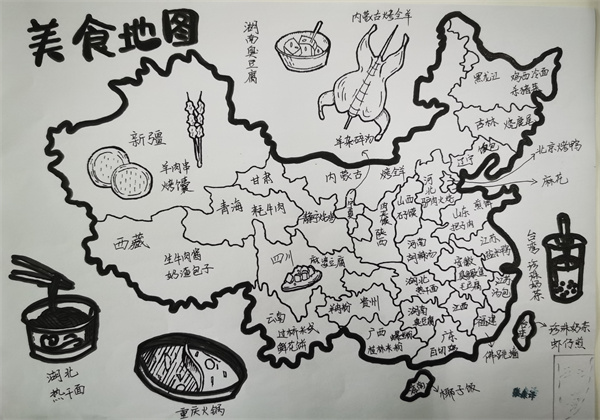 美食地图
湖南臭豆腐
内蒙古烤全羊
黑龙江
鸡西冷面
杀猪菜
吉林
辽宁
北京烤鸭
麻花
新疆
羊肉串
烤馕
羊杂碎汤
甘肃
内蒙古
烤全羊
青海
牦牛肉
宁夏
陕西
山西
河北
驴肉火烧
山东
西藏
生牛肉酱
奶渣包子
四川
麻婆豆腐
河南
胡辣汤
江苏
安徽
湖北
热干面
云南
过桥米线
鲜花饼
贵州
湖南
臭豆腐
江西
福建
佛跳墙
广西
桂林米粉
广东
白切鸡
椰子饭
台湾珍珠奶茶
珍珠奶茶
蚵仔煎
湖北
热干面
重庆火锅